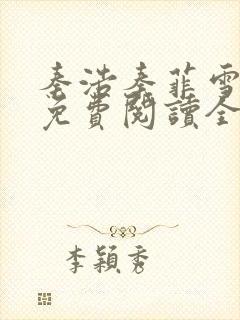 秦浩秦菲雪
免費閱讀全
李穎秀